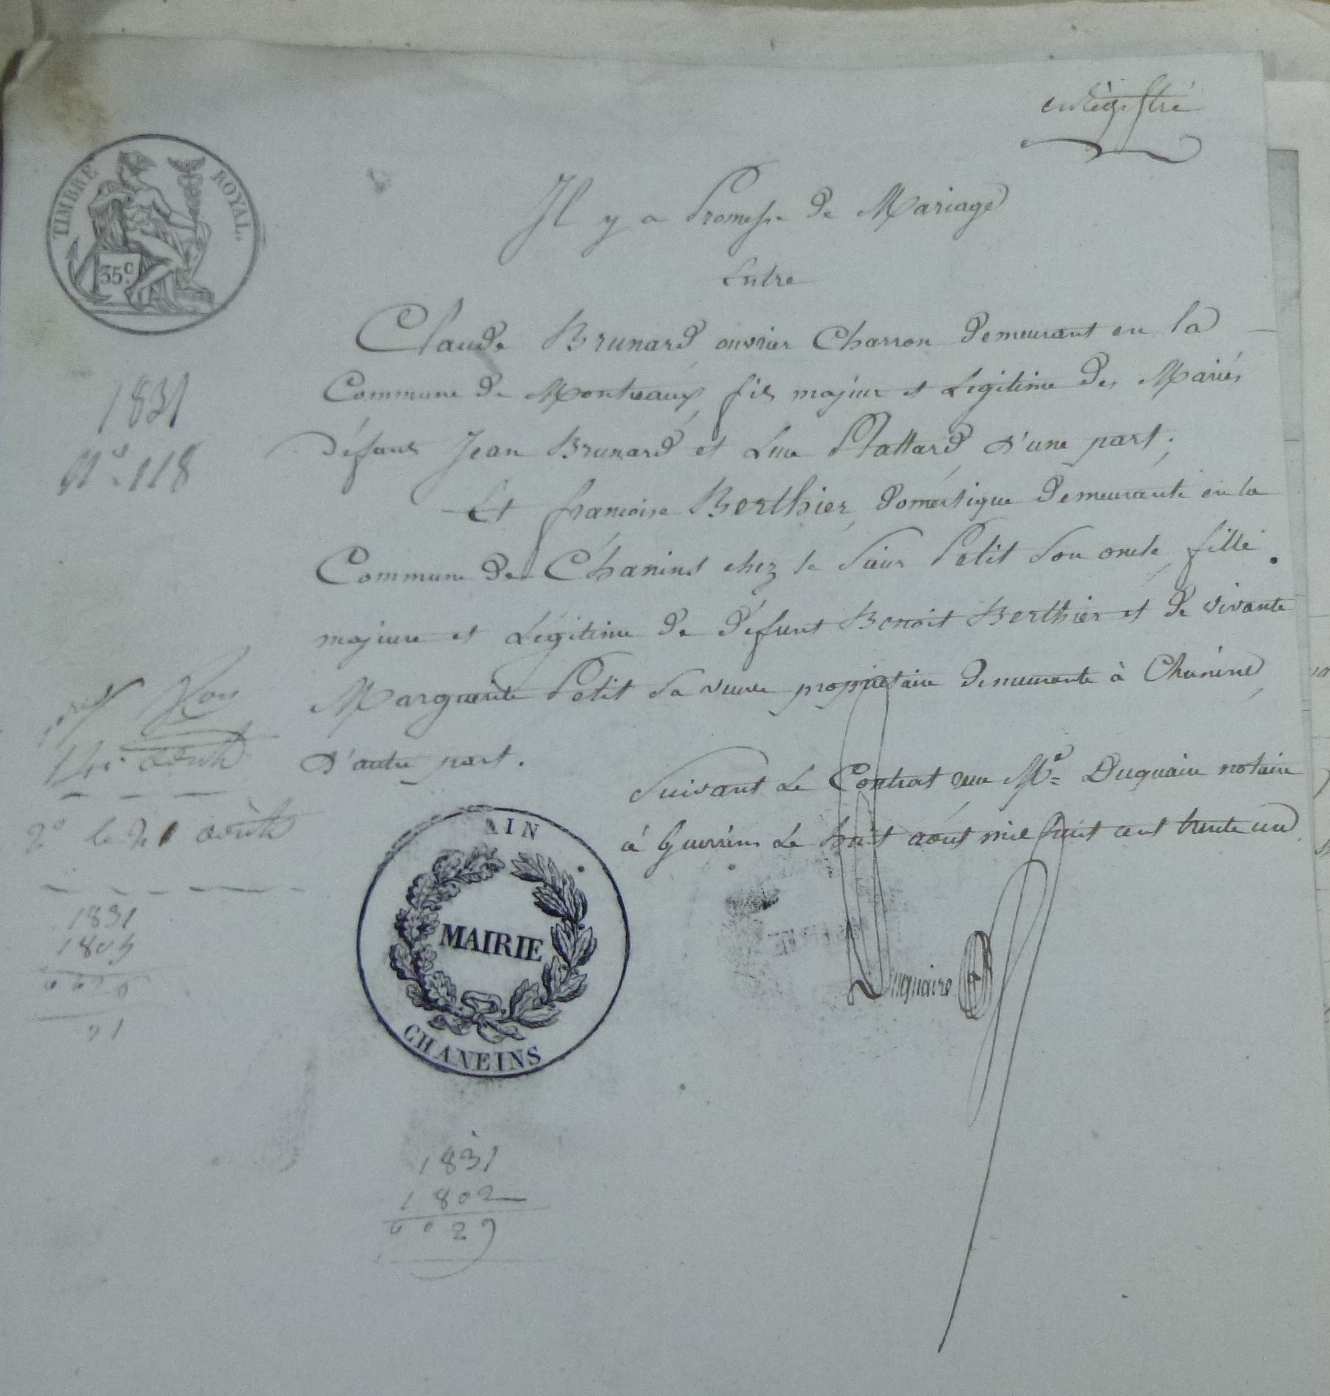 enregistré
TIMBRE ROYAL.
35c.
Il y a Promesse de Mariage
Entre
Claude Brunard ouvrier Charron demeurant en la
Commune de Montceaux, fils majeur et Légitime des Mariés
défunts Jean Brunard et Plattard d'une part;
Et françoise Berthier, domestique demeurante en la
Commune de Chanins chez le Sieur Petit Son oncle, fille
majeure et Légitime de défunt Benoit Berthier et de vivante
Marguerite Petit Sa veuve propriétaire demeurante à Chanins
d'autre part.
Suivant Le Contrat reçu Me Duquaire notaire
à Guerreins Le huit août mil huit cent trente un
Duquaire
1831
N° 118
14 août
2° le 21 août
1831
1805
0026
21
AIN
MAIRIE
CHANEINS
1831
1802
0029